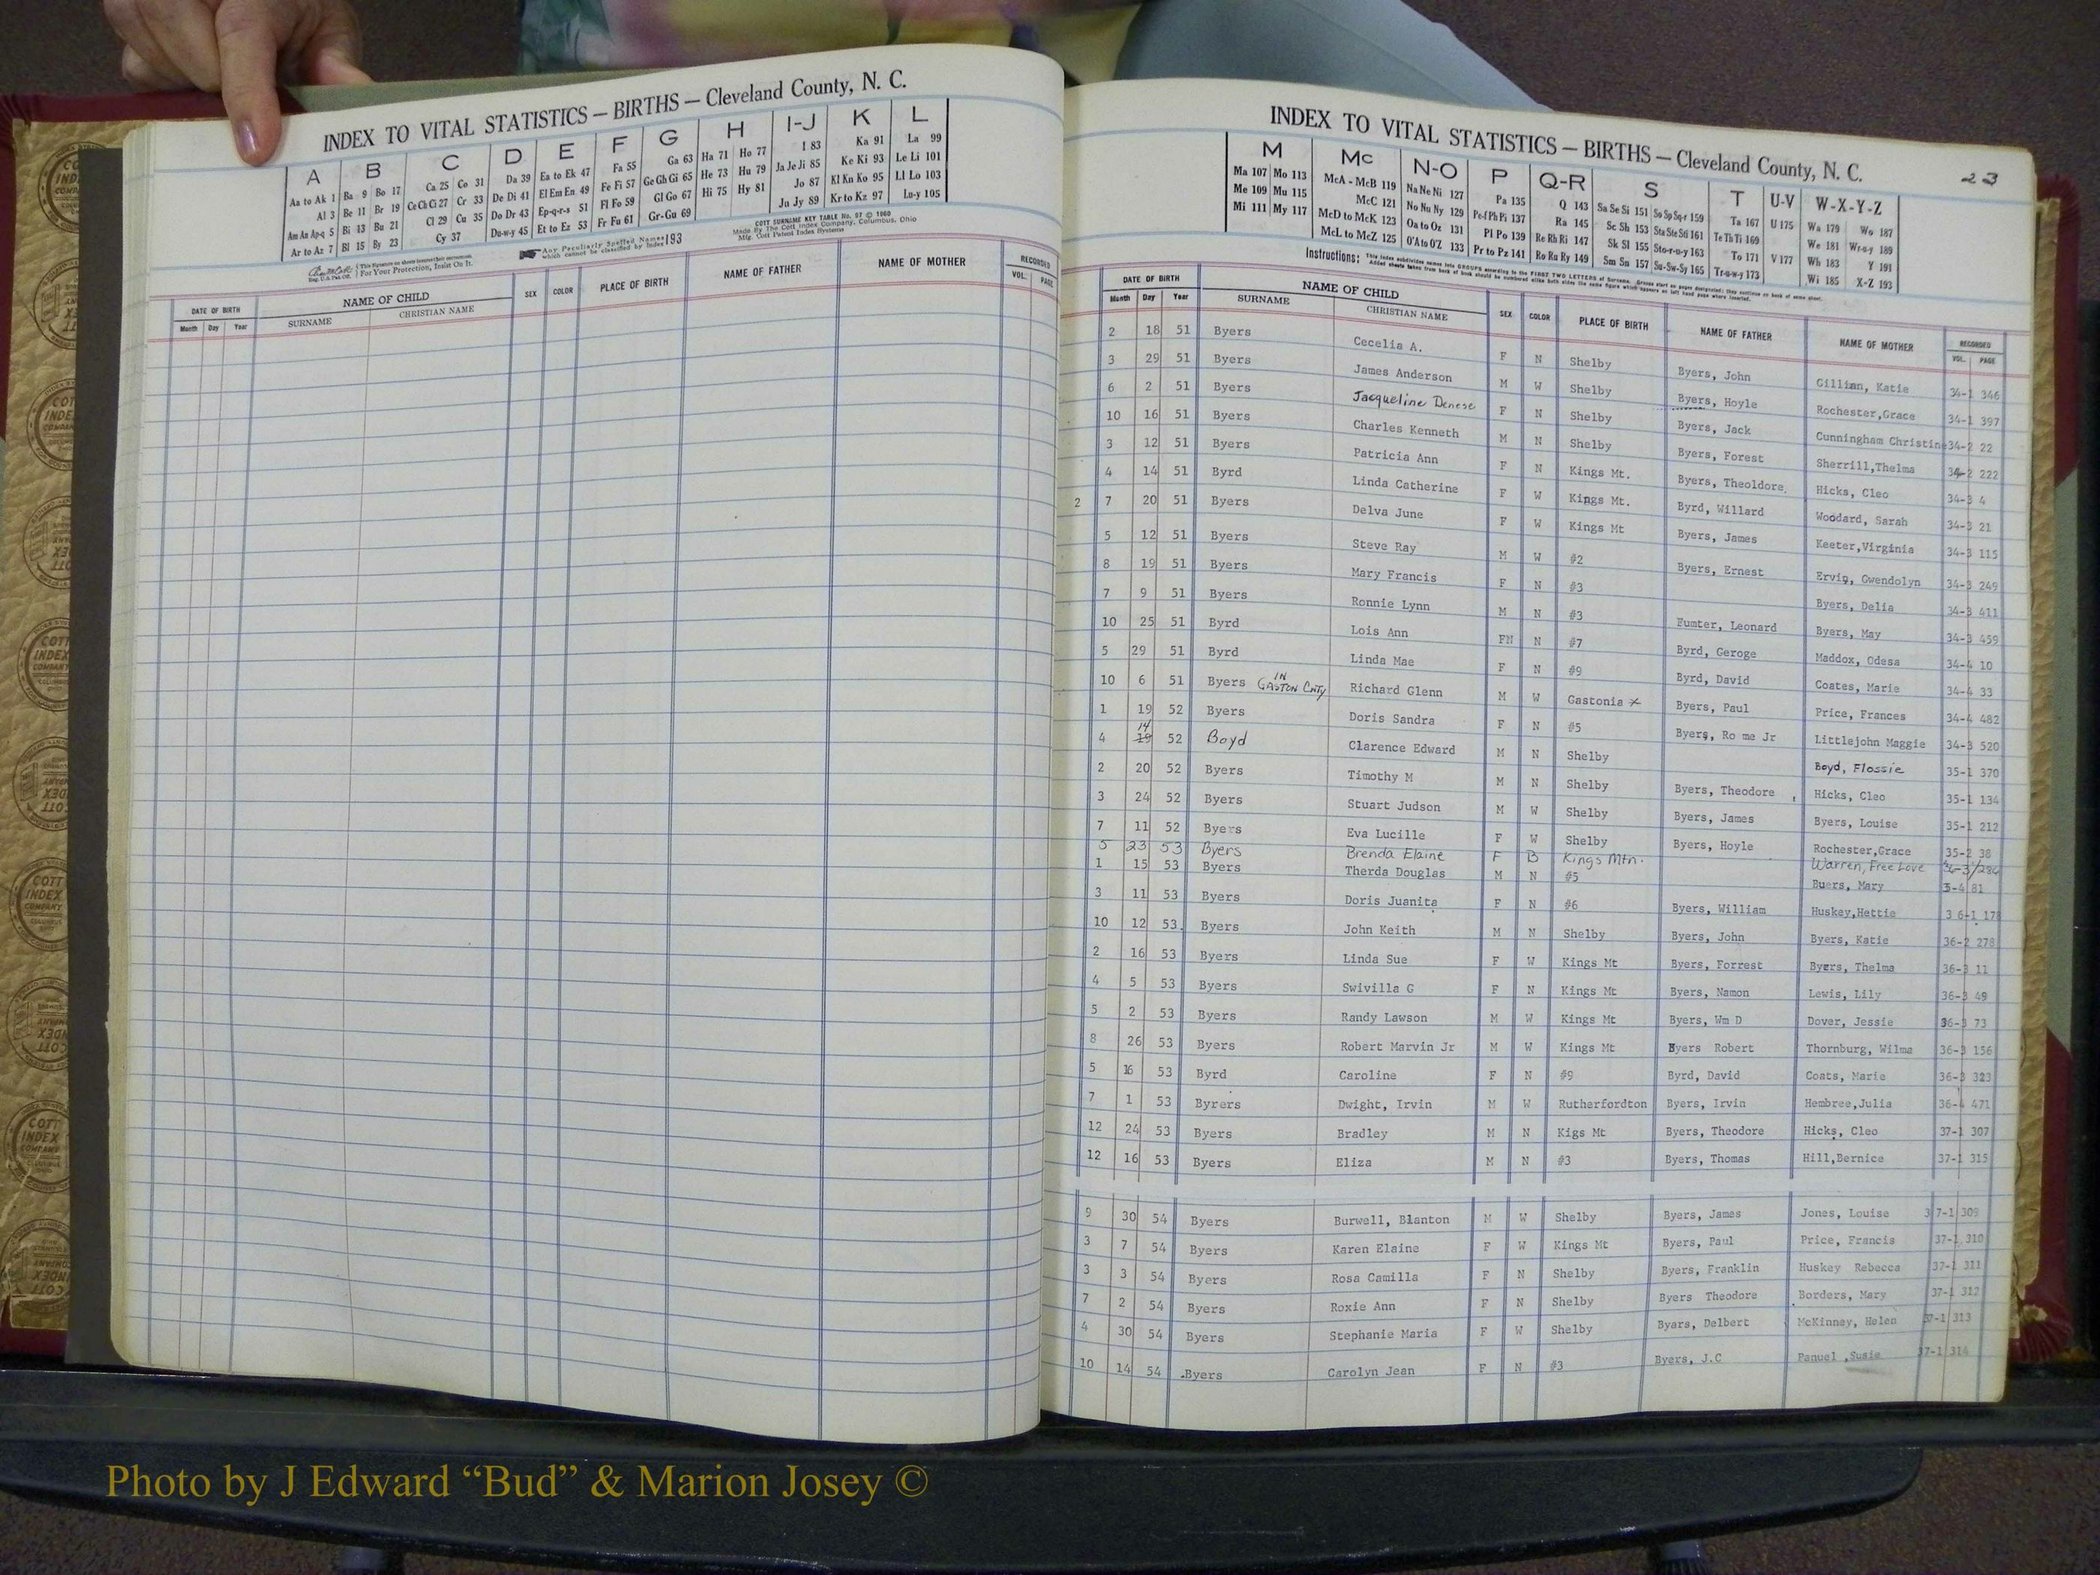 INDEX TO VITAL STATISTICS — BIRTHS — Cleveland County, N. C.
A B C D E F G H I-J K L
Aa to Ak 1 Ba 9 Bo 17 Ca 25 Co 31 Da 39 Ea to Ek 47 Fa 55 Ga 63 Ha 71 Ho 77 I 83 Ka 91 La 99
Al 3 Be 11 Br 19 Ce Ch Ci 27 Cr 33 De Di 41 El Em En 49 Fe Fi 57 Ge Gh Gi 65 He 73 Hu 79 Ja Je Ji 85 Ke Ki 93 Le Li 101
Am An Ap-q 5 Bi 13 Bu 21 Cl 29 Cu 35 Do Dr 43 Ep-q-r-s 51 Fl Fo 59 Gl Go 67 Hi 75 Hy 81 Jo 87 Kl Kn Ko 95 Ll Lo 103
Ar to Az 7 Bl 15 By 23 Cy 37 Du-w-y 45 Et to Ez 53 Fr Fu 61 Gr-Gu 69 Ju Jy 89 Kr to Kz 97 Lu-y 105
COTT SURNAME KEY TABLE No. 97 © 1960
Made By The Cott Index Company, Columbus, Ohio
Mfg. Cott Patent Index Systems
Any Peculiarly Spelled Names which cannot be classified by Index 193
This Signature on sheets insures their correctness. For Your Protection, Insist On It.
DATE OF BIRTH NAME OF CHILD SEX COLOR PLACE OF BIRTH NAME OF FATHER NAME OF MOTHER RECORDED
Month Day Year SURNAME CHRISTIAN NAME VOL. PAGE
INDEX TO VITAL STATISTICS — BIRTHS — Cleveland County, N. C.
23
M Mc N-O P Q-R S T U-V W-X-Y-Z
Ma 107 Mo 113 McA - McB 119 Na Ne Ni 127 Pa 135 Q 143 Sa Se Si 151 So Sp Sq-r 159 Ta 167 U 175 Wa 179 Wo 187
Me 109 Mu 115 McC 121 No Nu Ny 129 Pe-f Ph Pi 137 Ra 145 Sc Sh 153 Sta Ste Sti 161 Te Th Ti 169 We 181 Wr-u-y 189
Mi 111 My 117 McD to McK 123 Oa to Oz 131 Pl Po 139 Re Rh Ri 147 Sk Sl 155 Sto-r-u-y 163 To 171 V 177 Wh 183 Y 191
McL to McZ 125 O'A to O'Z 133 Pr to Pz 141 Ro Ru Ry 149 Sm Sn 157 Su-Sw-Sy 165 Tr-u-w-y 173 Wi 185 X-Z 193
Instructions: This index subdivides names into GROUPS according to the FIRST TWO LETTERS of Surname.
DATE OF BIRTH NAME OF CHILD SEX COLOR PLACE OF BIRTH NAME OF FATHER NAME OF MOTHER RECORDED
Month Day Year SURNAME CHRISTIAN NAME VOL. PAGE
2 18 51 Byers Cecelia A. F N Shelby Byers, John Gillian, Katie 34-1 346
3 29 51 Byers James Anderson M W Shelby Byers, Hoyle Rochester,Grace 34-1 397
6 2 51 Byers Jacqueline Denese F N Shelby Byers, Jack Cunningham Christine 34-2 22
10 16 51 Byers Charles Kenneth M N Shelby Byers, Forest Sherrill,Thelma 34-2 222
3 12 51 Byers Patricia Ann F N Kings Mt. Byers, Theoldore. Hicks, Cleo 34-3 4
4 14 51 Byrd Linda Catherine F W Kings Mt. Byrd, Willard Woodard, Sarah 34-3 21
2 7 20 51 Byers Delva June F W Kings Mt Byers, James Keeter,Virginia 34-3 115
5 12 51 Byers Steve Ray M W #2 Byers, Ernest Ervin, Gwendolyn 34-3 249
8 19 51 Byers Mary Francis F N #3 Byers, Delia 34-3 411
7 9 51 Byers Ronnie Lynn M N #3 Eumter, Leonard Byers, May 34-3 459
10 25 51 Byrd Lois Ann FN N #7 Byrd, Geroge Maddox, Odesa 34-4 10
5 29 51 Byrd Linda Mae F N #9 Byrd, David Coates, Marie 34-4 33
10 6 51 Byers IN GASTON CNTY Richard Glenn M W Gastonia x Byers, Paul Price, Frances 34-4 482
1 19 52 Byers Doris Sandra F N #5 Byers, Ro me Jr Littlejohn Maggie 34-3 520
4 14 19 52 Boyd Clarence Edward M N Shelby Boyd, Flossie 35-1 370
2 20 52 Byers Timothy M M N Shelby Byers, Theodore , Hicks, Cleo 35-1 134
3 24 52 Byers Stuart Judson M W Shelby Byers, James Byers, Louise 35-1 212
7 11 52 Byers Eva Lucille F W Shelby Byers, Hoyle Rochester,Grace 35-2 38
5 23 53 Byers Brenda Elaine F B Kings Mtn. Warren, Free Love
1 15 53 Byers Therda Douglas M N #5 Buers, Mary 3-4 81
3 11 53 Byers Doris Juanita F N #6 Byers, William Huskey,Hettie 3 6-1 178
10 12 53. Byers John Keith M N Shelby Byers, John Byers, Katie 36-2 278
2 16 53 Byers Linda Sue F W Kings Mt Byers, Forrest Byers, Thelma 36-3 11
4 5 53 Byers Swivilla G F N Kings Mt Byers, Namon Lewis, Lily 36-3 49
5 2 53 Byers Randy Lawson M W Kings Mt Byers, Wm D Dover, Jessie 36-3 73
8 26 53 Byers Robert Marvin Jr M W Kings Mt Byers Robert Thornburg, Wilma 36-3 156
5 16 53 Byrd Caroline F N #9 Byrd, David Coats, Marie 36-3 323
7 1 53 Byrers Dwight, Irvin M W Rutherfordton Byers, Irvin Hembree,Julia 36-4 471
12 24 53 Byers Bradley M N Kigs Mt Byers, Theodore Hicks, Cleo 37-1 307
12 16 53 Byers Eliza M N #3 Byers, Thomas Hill,Bernice 37-1 315
9 30 54 Byers Burwell, Blanton M W Shelby Byers, James Jones, Louise 37-1 309
3 7 54 Byers Karen Elaine F W Kings Mt Byers, Paul Price, Francis 37-1 310
3 3 54 Byers Rosa Camilla F N Shelby Byers, Franklin Huskey Rebecca 37-1 311
7 2 54 Byers Roxie Ann F N Shelby Byers Theodore Borders, Mary 37-1 312
4 30 54 Byers Stephanie Maria F W Shelby Byars, Delbert McKinney, Helen 37-1 313
10 14 54 .Byers Carolyn Jean F N #3 Byers, J.C Panuel ,Susie 37-1 314
Photo by J Edward “Bud” & Marion Josey ©